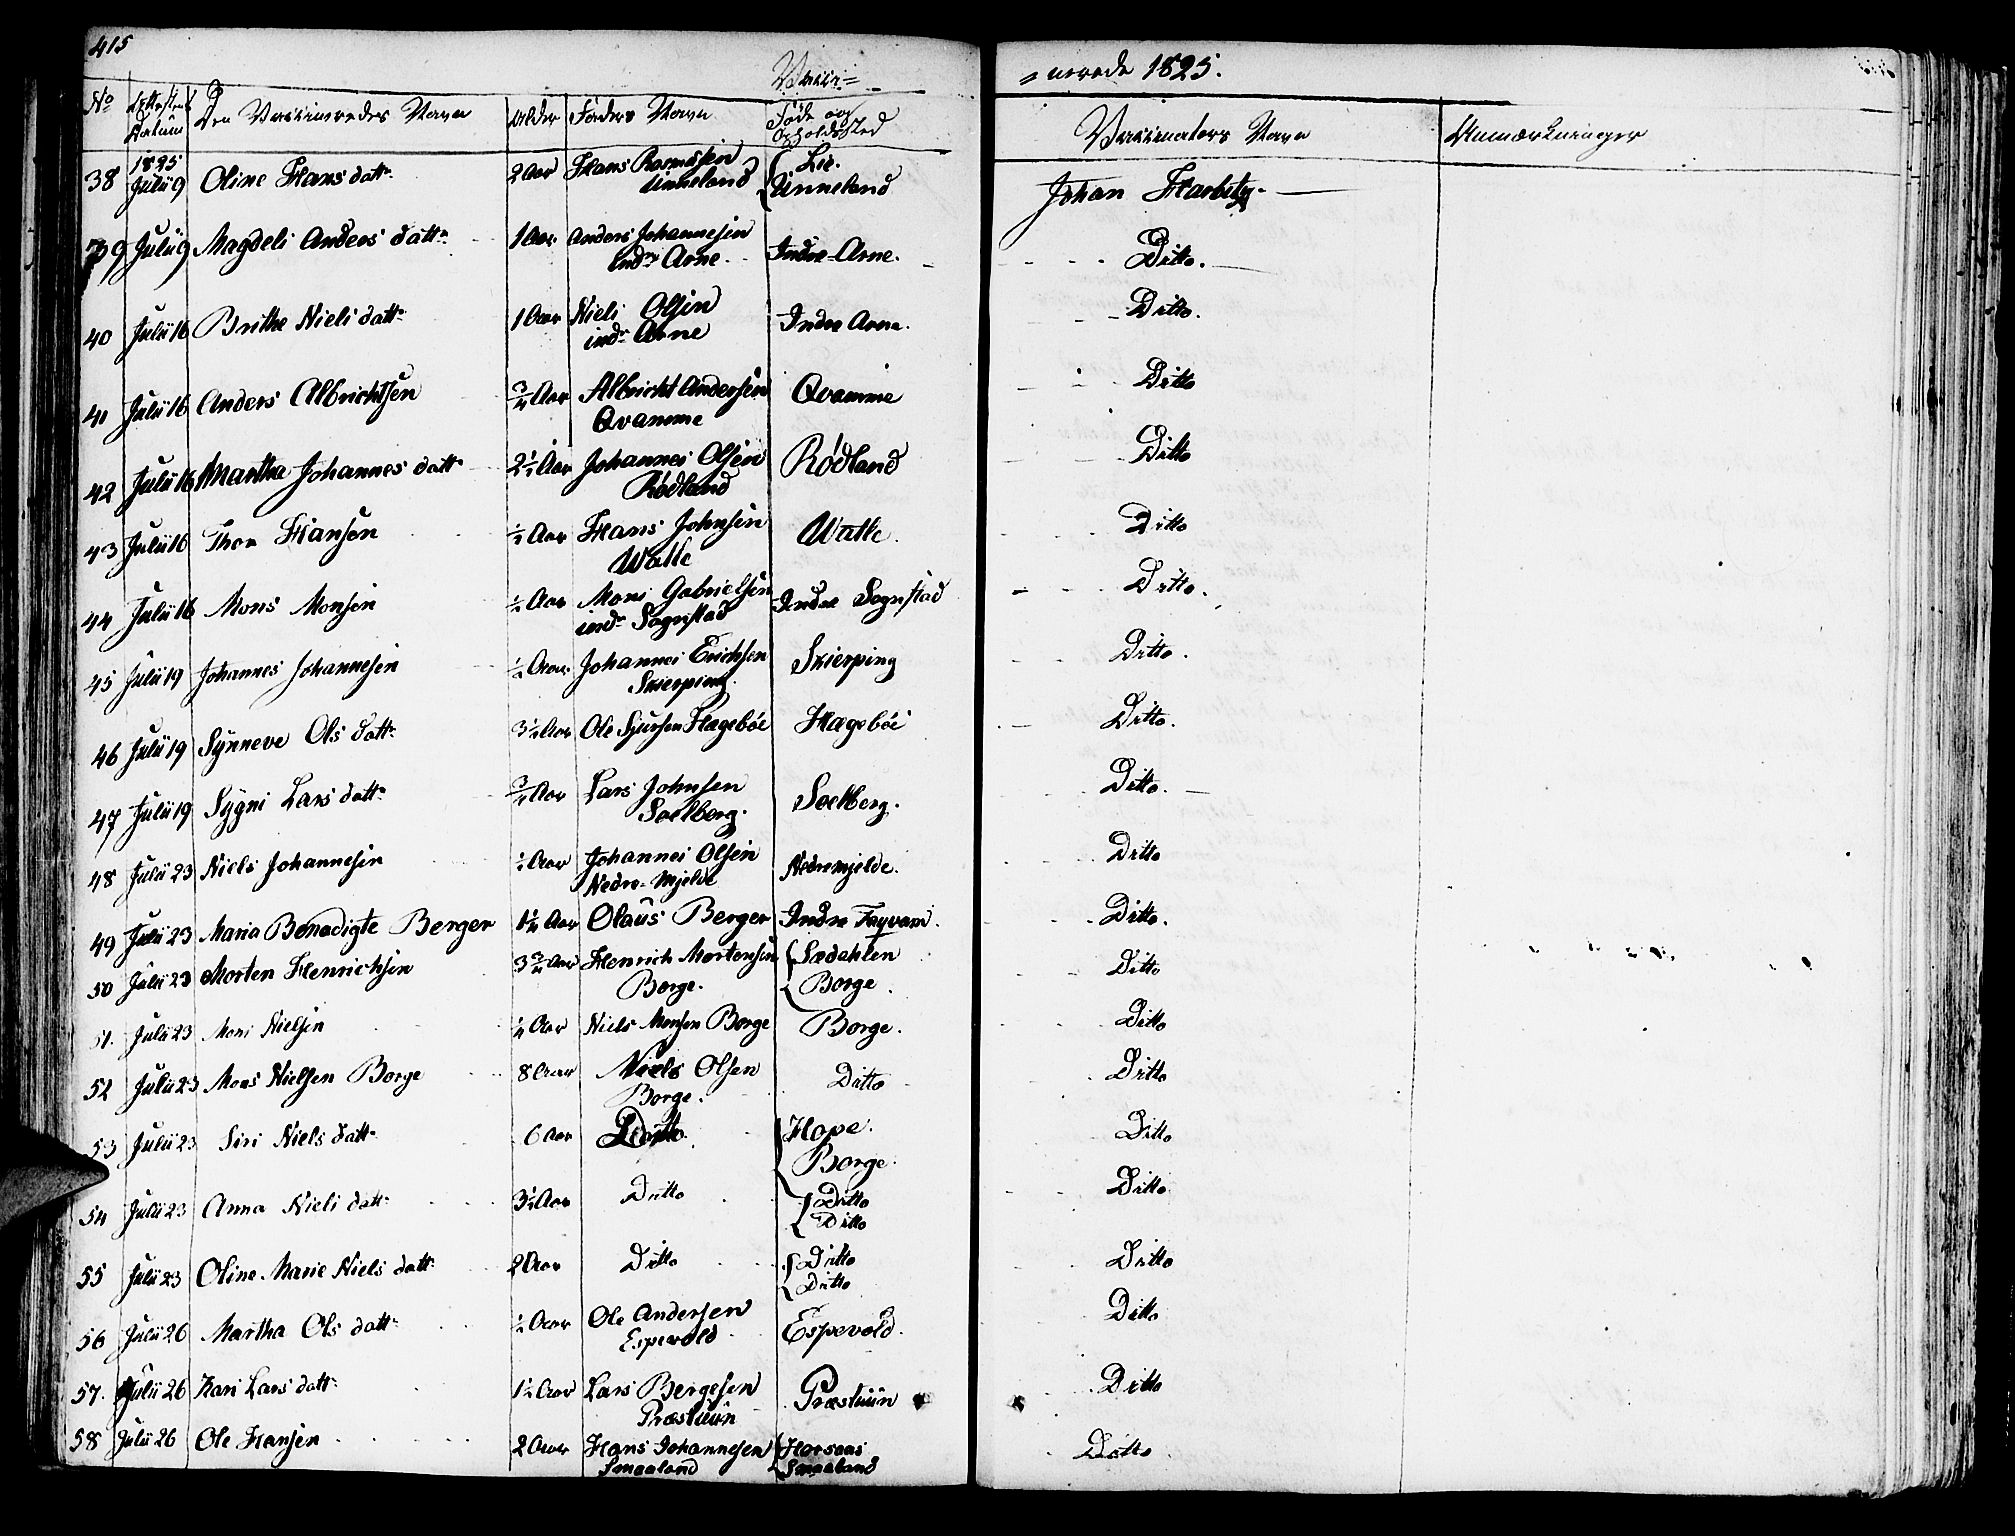 415
Vacci= = nerede 1825.
No Attestens Datum Den Vaccineredes Navn Alder Faders Navn Føde og Opholdssted Vaccinators Navn Anmærkninger
1825
38 Julii 9 Oline Hans datter 2 Aar Hans Rasmussen Unneland Lie. Unneland Johan Harbitz
39 Julii 9 Magdeli Anders dattr 1 Aar Anders Johannesen indr Arne Indre Arne. Ditto.
40 Julii 16 Brithe Niels dattr 1 Aar Niels Olsen indr Arne Indre Arne. Ditto.
41 Julii 16 Anders Albrichtsen 3/4 Aar Albricht Andersen Qvamme Qvamme Ditto
42 Julii 16 Martha Johannes dattr 2 1/2 Aar Johannes Olsen Rødland Rødland Ditto
43 Julii 16 Thor Hansen 1/2 Aar Hans Johnsen Walle Walle. Ditto
44 Julii 16 Mons Monsen 1/2 Aar Mons Gabrielsen indr Sognstad Indre Sognstad Ditto.
45 Julii 19 Johannes Johannesen 1/2 Aar Johannes Erichsen Skierping Skierping Ditto.
46 Julii 19 Synneve Ols dattr 3 1/2 Aar Ole Sjursen Hagebøe Hagebøe Ditto.
47 Julii 19 Sygni Lars dattr 3/4 Aar Lars Johnsen Soelberg. Soelberg. Ditto.
48 Julii 23 Niels Johannesen 1/2 Aar Johannes Olsen Nedre-Mjelde Nedremjelde. Ditto
49 Julii 23 Maria Benedigte Berger 1 1/4 Aar Olaus Berger Indre Ditto.
50 Julii 23 Morten Henrichsen 3 3/4 Aar Henrich Mortensen Borge. Sædahlen Borge. Ditto
51. Julii 23 Mons Nielsen 1/4 Aar Niels Monsen Borge Borge. Ditto
52 Julii 23 Mons Nielsen Borge 8 Aar Niels Olsen Borge. Ditto Ditto
53 Julii 23 Siri Niels dattr 6 Aar Ditto Hope. Borge. Ditto
54 Julii 23 Anna Niels dattr 3 1/2 Aar Ditto Ditto Ditto Ditto
55 Julii 23 Oline Marie Niels dattr 2 Aar Ditto Ditto Ditto Ditto
56 Julii 26 Martha Ols dattr 1/2 Aar Ole Andersen Espevold Espevold. Ditto
57. Julii 26 Kari Lars dattr 1 1/2 Aar Lars Bergesen Præstuun Præstuun Ditto
58 Julii 26 Ole Hansen 2 Aar Hans Johannesen Smaaland Horsens Smaaland Ditto